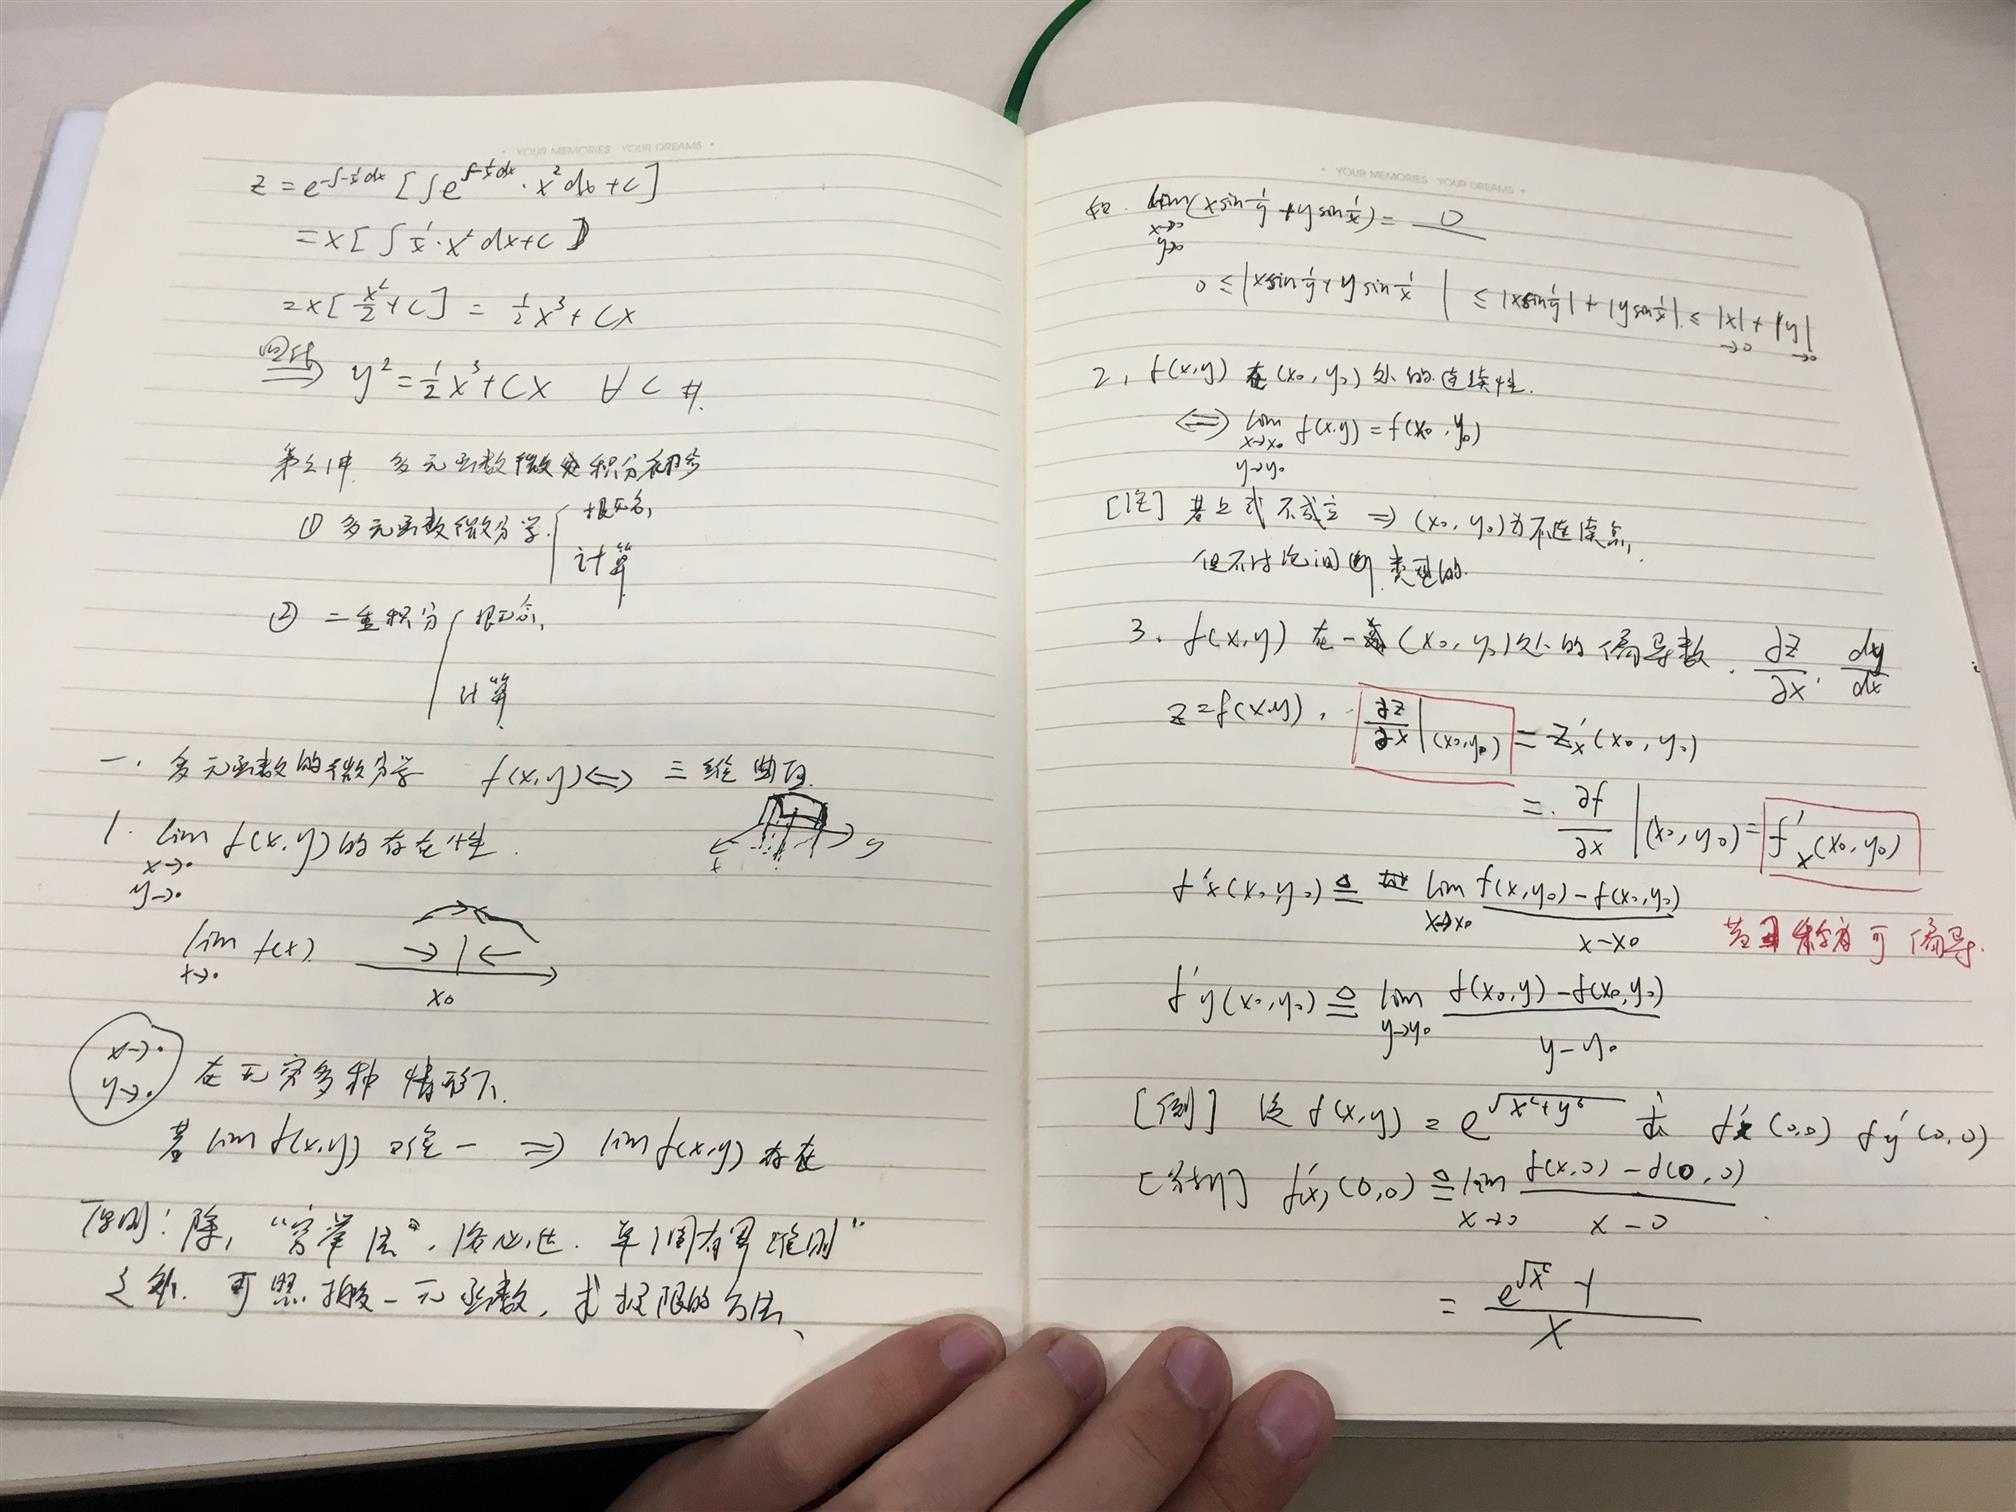 YOUR MEMORIES YOUR DREAMS
z = e^{-∫-1/x dx} [∫e^{∫-1/x dx}·x² dx + C]
= x[∫1/x·x² dx + C]
= x[x²/2 + C] = 1/2 x³ + Cx
⇒ y² = 1/2 x³ + Cx ∀C #.
多元函数微积分初步
① 多元函数微分学 { 概念,
计算
② 二重积分 { 概念,
计算
一. 多元函数的微分学 f(x,y) ⇔ 三维曲面.
1. lim f(x,y) 的存在性.
x→·
y→·
y
x
lim f(x)
x→·
x₀
x→·
y→·
在无穷多种情形下.
若 lim f(x,y) 唯一 ⇒ lim f(x,y) 存在
原则: 除, "穷举法", 洛必达. 单调有界准则"
之外. 可照搬一元函数, 求极限的方法、
YOUR MEMORIES YOUR DREAMS
lim (x sin 1/y + y sin 1/x) = 0
x→0
y→0
0 ≤ |x sin 1/y + y sin 1/x| ≤ |x sin 1/y| + |y sin 1/x| ≤ |x| + |y|
→0 →0
2, f(x,y) 在 (x₀, y₀) 处的连续性.
⇔ lim f(x,y) = f(x₀, y₀)
x→x₀
y→y₀
[注] 若上式不成立 ⇒ (x₀, y₀) 为不连续点,
但不讨论间断类型的.
3. f(x,y) 在一点 (x₀, y₀) 处的偏导数. ∂z/∂x, dy/dx
z = f(x,y), ∂z/∂x |(x₀,y₀) = z'x(x₀, y₀)
= ∂f/∂x |(x₀, y₀) = f'x(x₀, y₀)
f'x(x₀, y₀) ≜ lim f(x,y₀) − f(x₀,y₀)
x→x₀ x−x₀
若∃ 称为可偏导.
f'y(x₀, y₀) ≜ lim f(x₀,y) − f(x₀,y₀)
y→y₀ y−y₀
[例] 设 f(x,y) = e^{√(x²+y⁶)} 求 f'x(0,0) f'y(0,0)
[分析] f'x(0,0) ≜ lim f(x,0) − f(0,0)
x→0 x−0
= e^{√x²} − 1
x